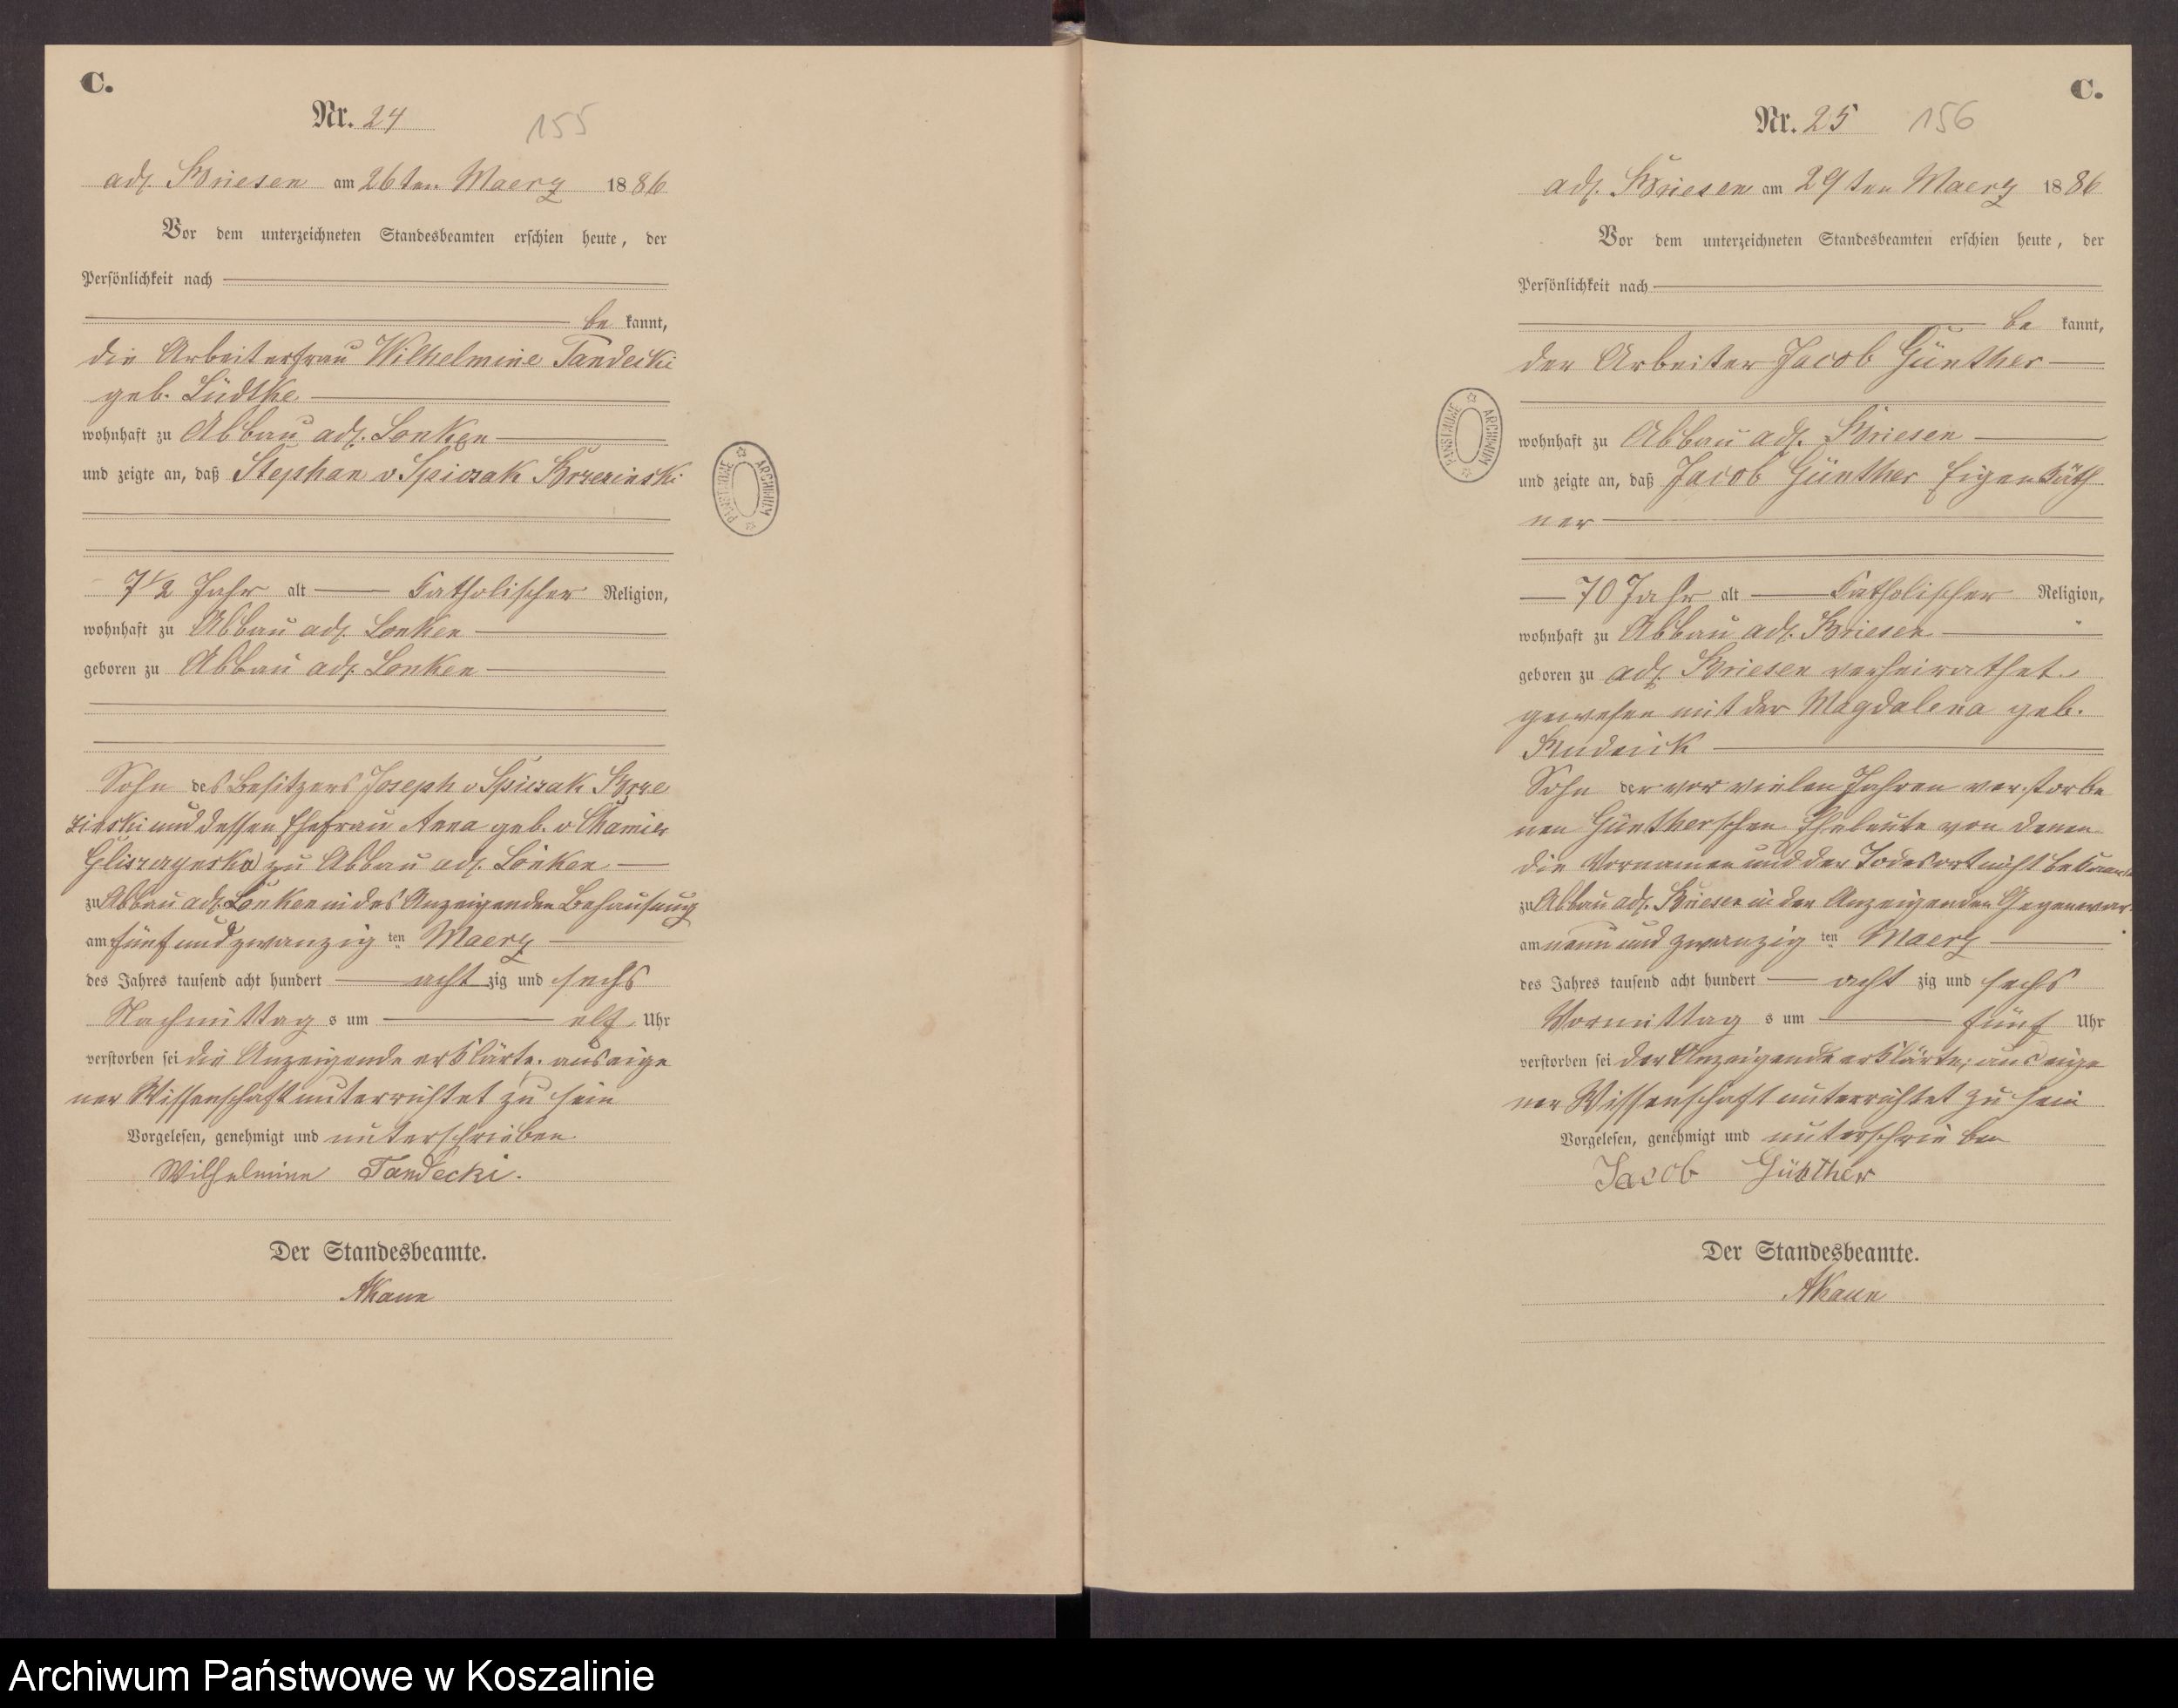 C.
Nr. 24
155
adl. Briesen am 26ten Maerz 1886
Vor dem unterzeichneten Standesbeamten erschien heute, der
Persönlichkeit nach
be kannt,
die Arbeiterfrau Wilhelmine Tandecki
geb. Lüdtke
wohnhaft zu Abbau adl. Lonken
und zeigte an, daß Stephan v Spiczak Brzezinski
7 1/2 Jahr alt Catholischer Religion,
wohnhaft zu Abbau adl. Lonken
geboren zu Abbau adl. Lonken
Sohn des Besitzers Joseph v Spiczak Brze
zinski und dessen Ehefrau Anna geb. v Chamier
Gliszczynska zu Abbau adl. Lonken
zu Abbau adl. Lonken in des Anzeigenden Behausung
am fünf und zwanzig ten Maerz
des Jahres tausend acht hundert acht zig und sechs
Nachmittag s um elf Uhr
verstorben sei die Anzeigende erklärte, aus eige
ner Wissenschaft unterrichtet zu sein
Vorgelesen, genehmigt und unterschrieben
Wilhelmine Tandecki.
Der Standesbeamte.
C.
Nr. 25
156
adl. Briesen am 29ten Maerz 1886
Vor dem unterzeichneten Standesbeamten erschien heute, der
Persönlichkeit nach
be kannt,
der Arbeiter Jacob Günther
wohnhaft zu Abbau adl. Briesen
und zeigte an, daß Jacob Günther Eigenkäth
ner
70 Jahr alt Catholischer Religion,
wohnhaft zu Abbau adl. Briesen
geboren zu adl. Briesen verheirathet
gewesen mit der Magdalena geb.
Sohn der vor vielen Jahren verstorbe
nen Güntherschen Eheleute von denen
die Vornamen und der Todesort nicht bekannt
zu Abbau adl. Briesen in des Anzeigenden Gegenwart
am neun und zwanzig ten Maerz
des Jahres tausend acht hundert acht zig und sechs
Vormittag s um fünf Uhr
verstorben sei der Anzeigende erklärte, aus eige
ner Wissenschaft unterrichtet zu sein
Vorgelesen, genehmigt und unterschrieben
Jacob Günther
Der Standesbeamte.
ARCHIWUM PAŃSTWOWE
ARCHIWUM PAŃSTWOWE
Archiwum Państwowe w Koszalinie